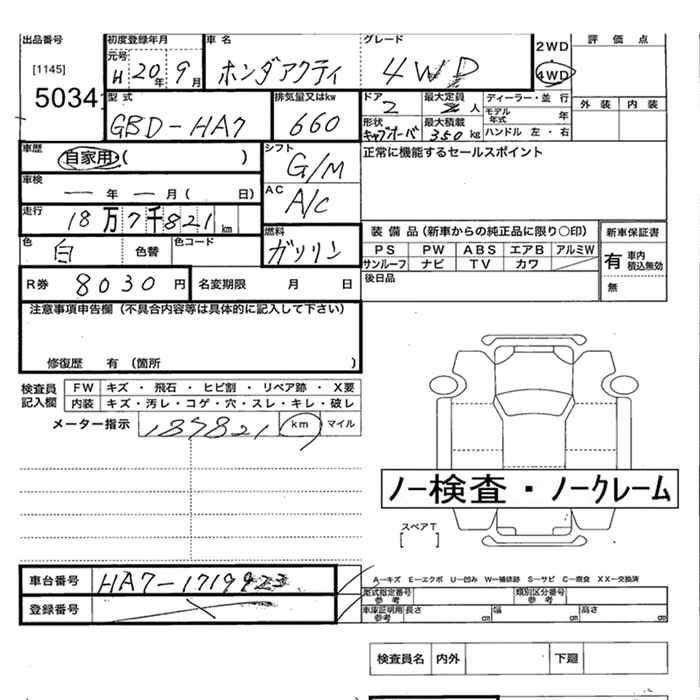 出品番号 初度登録年月 車名 グレード 評価点
[1145] 元号 H 20年 9月 ホンダアクティ 4WD 2WD
4WD
50341 型式 排気量又はkw ドア 2 最大定員 人 ディーラー・並行 外装 内装
GBD-HA7 660 モデル年式 年
形状 キャブオーバ 最大積載 350 kg ハンドル 左・右
車歴 自家用・( ) シフト G/M 正常に機能するセールスポイント
車検 ー年 ー月( 日) AC A/C
走行 18万7千821km
色 白 色替 色コード 燃料 ガソリン 装備品(新車からの純正品に限り○印) 新車保証書
PS PW ABS エアB アルミW 有 車内積込無効
サンルーフ ナビ TV カワ
R券 8030円 名変期限 月 日 後日品 無
注意事項申告欄(不具合内容等は具体的に記入して下さい)
修復歴 有(箇所 )
検査員記入欄 FW キズ・飛石・ヒビ割・リペア跡・X要
内装 キズ・汚レ・コゲ・穴・スレ・キレ・破レ
メーター指示 187821 km マイル
ノー検査・ノークレーム
スペアT
[ ]
車台番号 HA7-1719923
A―キズ E―エクボ U―凹み W―補修跡 S―サビ C―腐食 XX―交換済
登録番号
型式指定番号参考 類別区分番号参考
車庫証明用参考 長さ cm 幅 cm 高さ cm
検査員名 内外 下廻